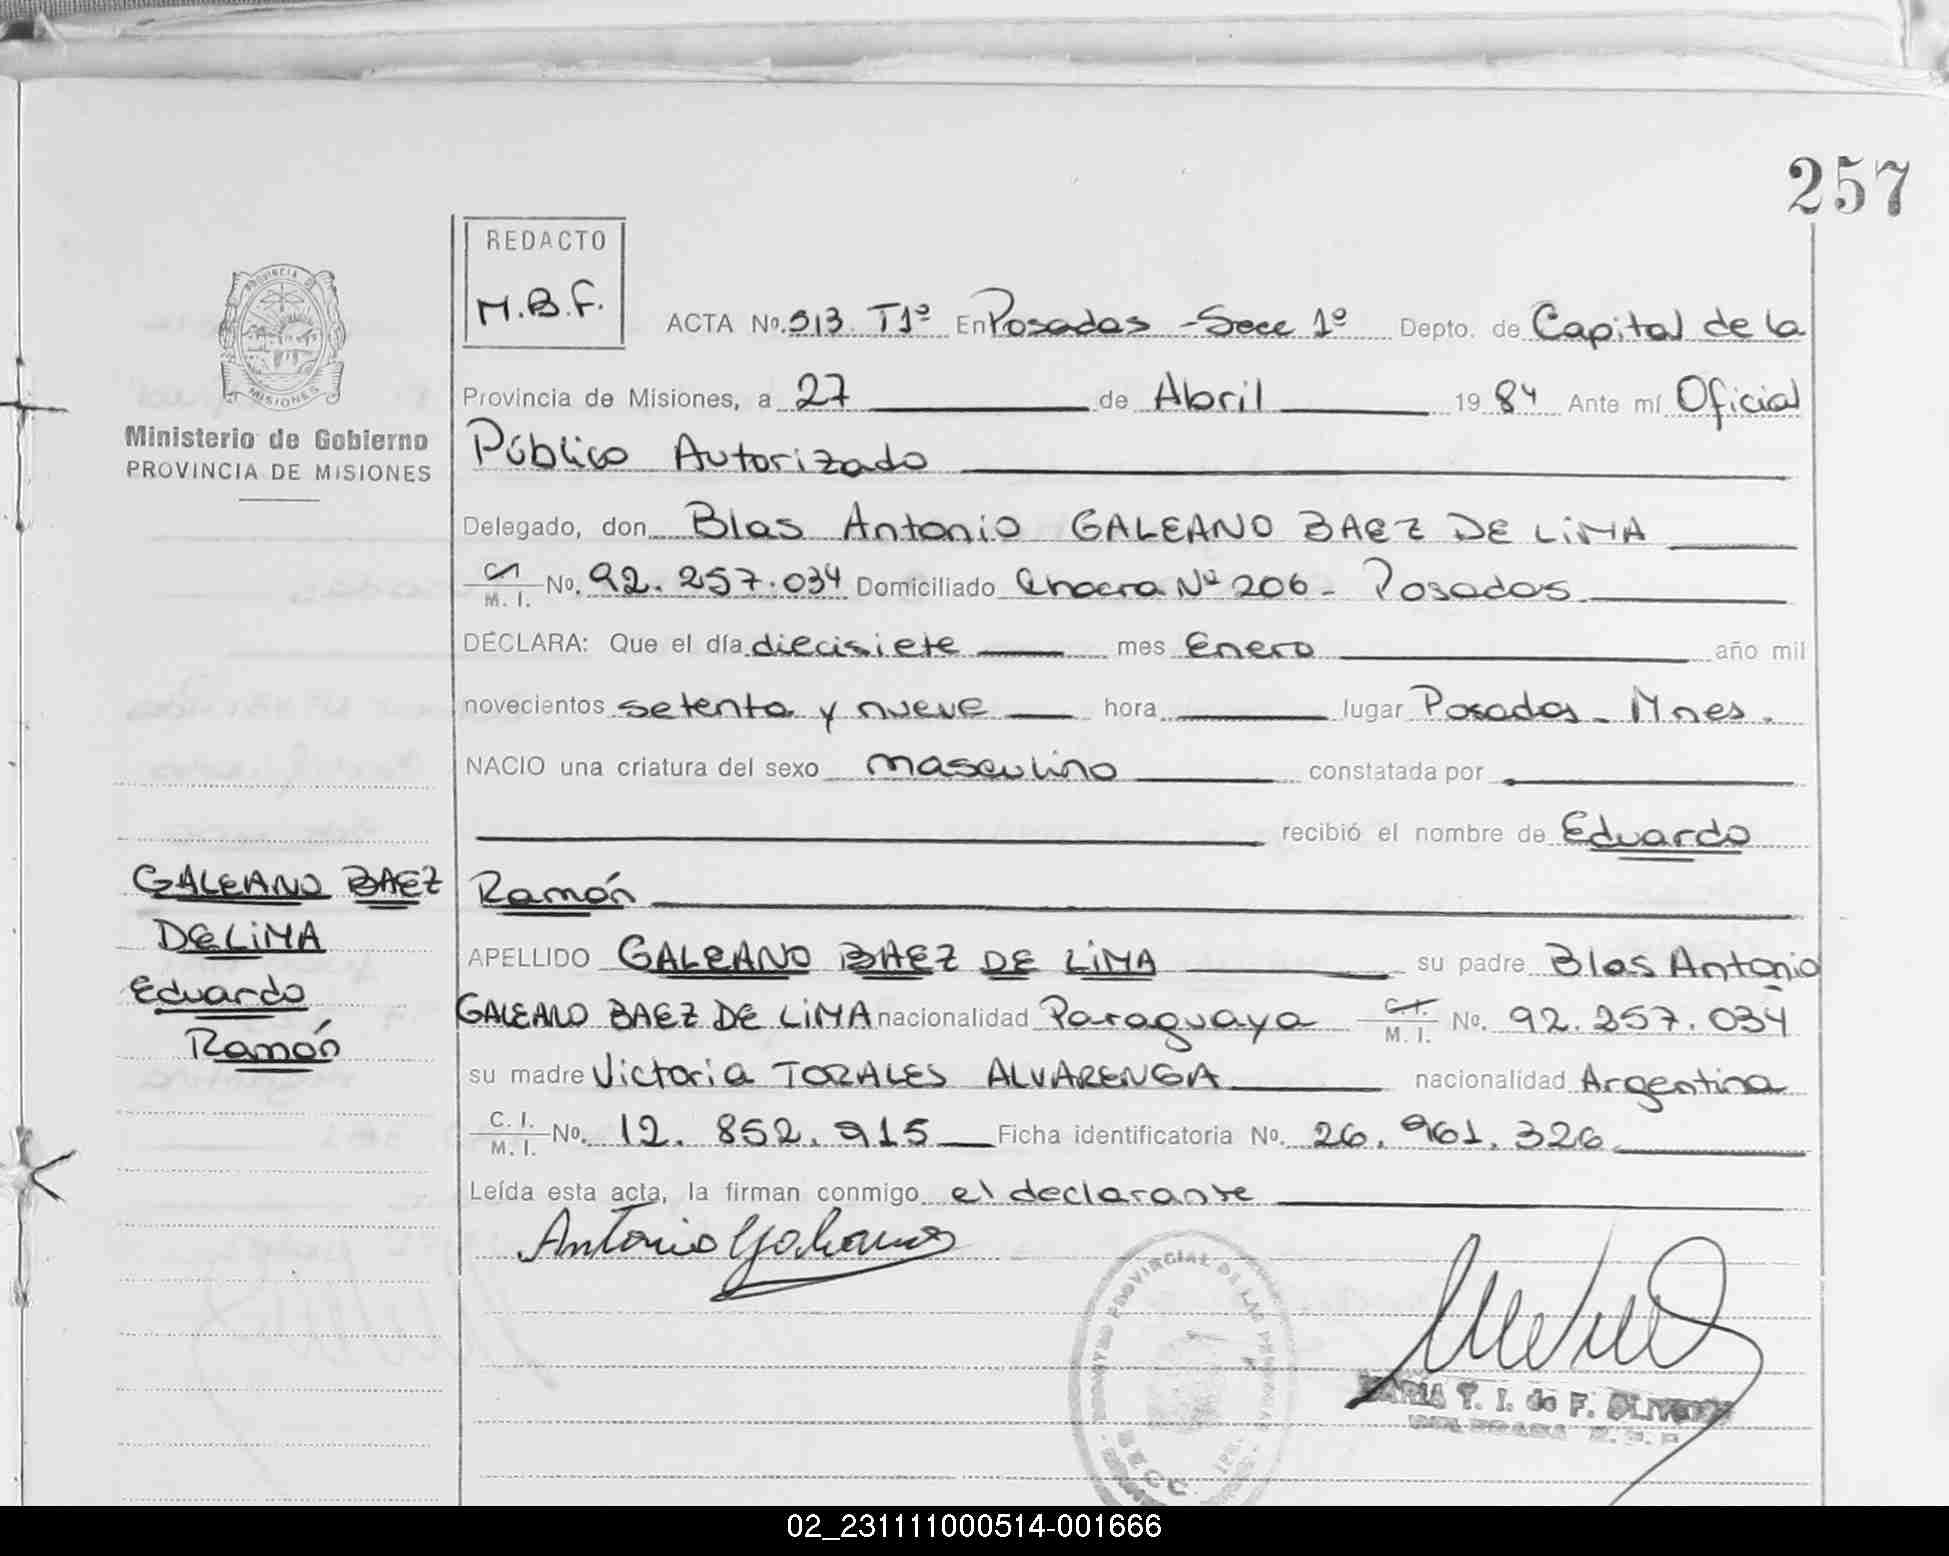 257
REDACTO
M.B.F.
ACTA No. 513 T1º En Posadas - Secc 1º Depto. de Capital de la
Provincia de Misiones, a 27 de Abril 19 84 Ante mí Oficial
Ministerio de Gobierno
PROVINCIA DE MISIONES
Público Autorizado
Delegado, don Blas Antonio GALEANO BAEZ DE LIMA
M. I. No. 92.257.034 Domiciliado Chacra Nº 206 - Posadas
DECLARA: Que el día diecisiete mes Enero año mil
novecientos setenta y nueve hora lugar Posadas - Mnes.
NACIO una criatura del sexo masculino constatada por
recibió el nombre de Eduardo
Ramón
GALEANO BAEZ
DE LIMA
Eduardo
Ramón
APELLIDO GALEANO BAEZ DE LIMA su padre Blas Antonio
GALEANO BAEZ DE LIMA nacionalidad Paraguaya C.I. M. I. No. 92.257.034
su madre Victoria TORALES ALVARENGA nacionalidad Argentina
C. I. M. I. No. 12.852.915 Ficha identificatoria No. 26.961.326
Leída esta acta, la firman conmigo el declarante
Antonio Galeano
MARIA T. I. de F.
02_231111000514-001666